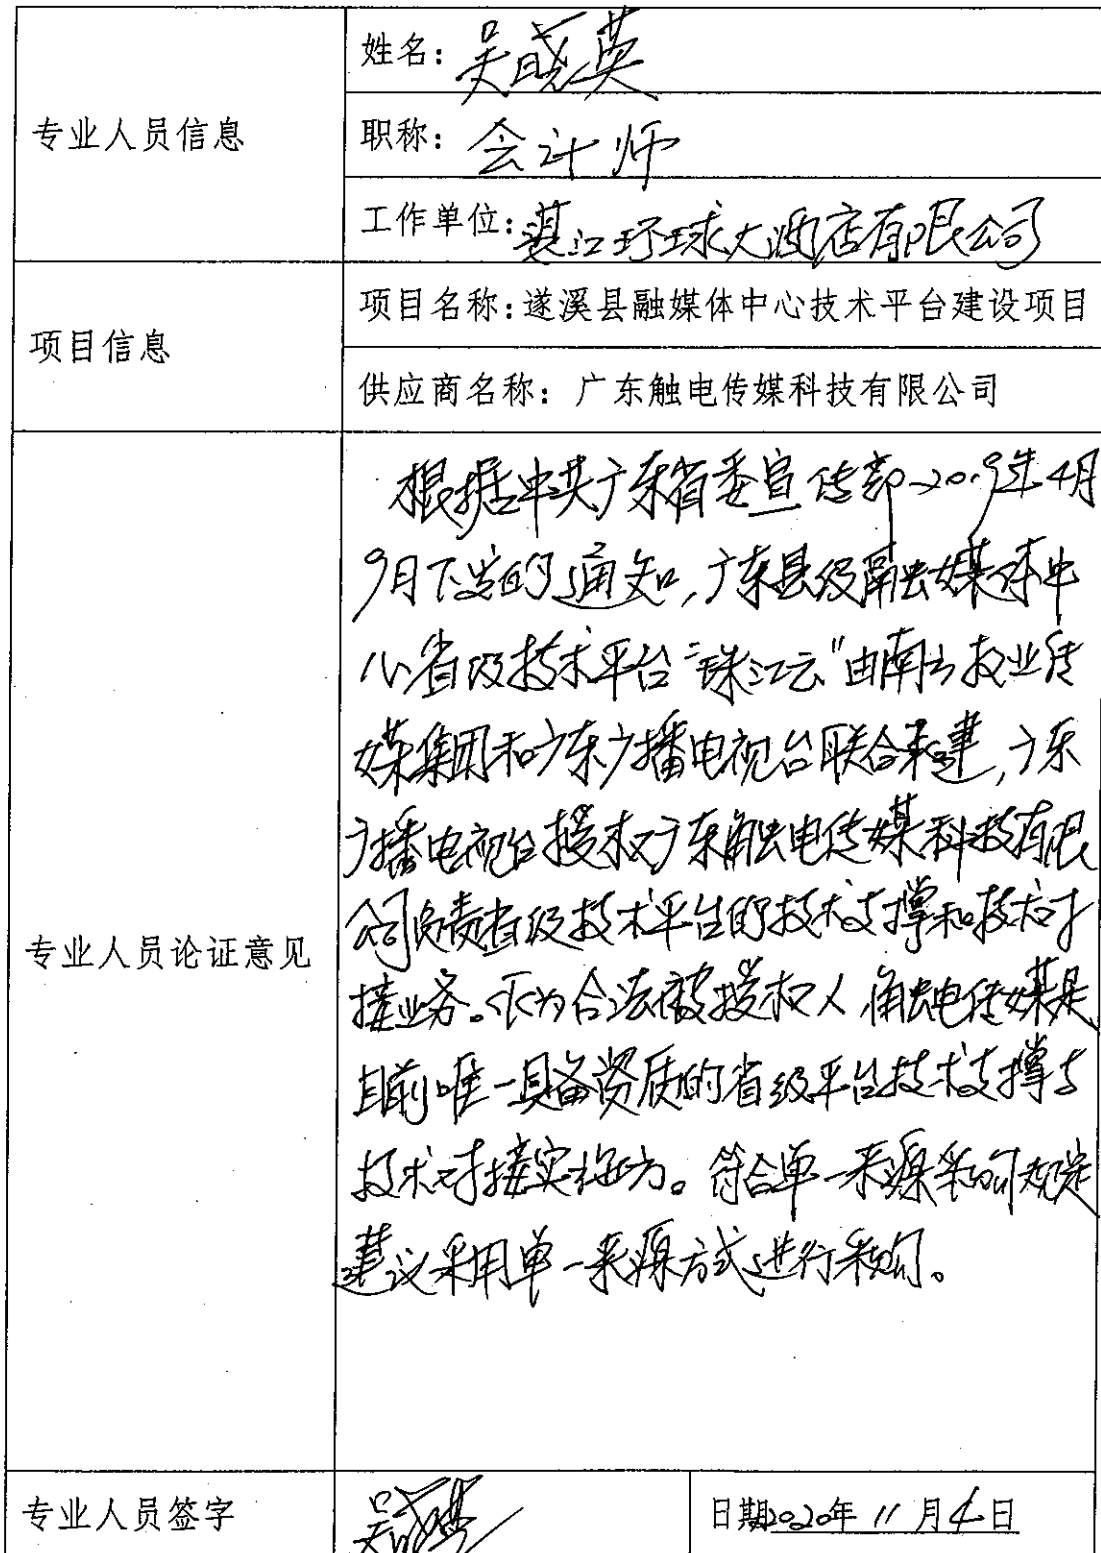 专业人员信息
姓名：吴晓英
职称：会计师
工作单位：湛江环球大酒店有限公司
项目信息
项目名称：遂溪县融媒体中心技术平台建设项目
供应商名称：广东触电传媒科技有限公司
专业人员论证意见
根据中共广东省委宣传部2019年4月
9月下发的通知,广东县级融媒体中
心省级技术平台"珠江云"由南方报业传
媒集团和广东广播电视台联合承建,广东
广播电视台授权广东触电传媒科技有限
公司负责省级技术平台的技术支撑和技术对
接业务。作为合法被授权人,触电传媒是
目前唯一具备资质的省级平台技术支撑与
技术对接实施方。符合单一来源采购规定
建议采用单一来源方式进行采购。
专业人员签字
吴晓英
日期2020年11月4日